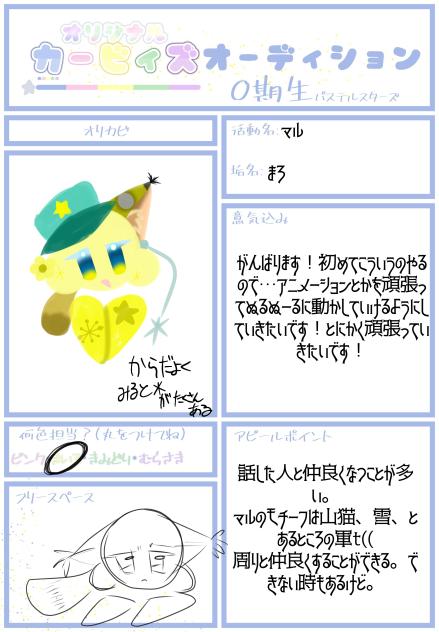 オリジナル
カービィズオーディション
0期生 パステルスターズ
オリカビ
活動名: マル
垢名: まろ
意気込み
がんばります！初めてこういうのやる
ので…アニメーションとかを頑張っ
てぬるぬーるに動かしていけるようにし
ていきたいです！とにかく頑張ってい
きたいです！
からだよく
みると*
がたくさん
ある
何色担当？(丸をつけてね)
ピンク・
・きみどり・むらさき
アピールポイント
話した人と仲良くなつことが多
い。
マルのモチーフは山猫、雪、と
あるところの軍t((
周りと仲良くすることができる。で
きない時もあるけど。
フリースペース